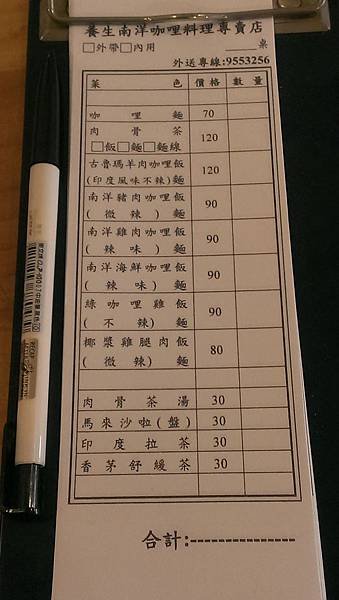 養生南洋咖哩料理專賣店
□外帶□內用 ____桌
外送專線:9553256
菜色 價格 數量
咖哩麵 70
肉骨茶
□飯□麵□麵線 120
古魯瑪羊肉咖哩飯
(印度風味不辣)麵 120
南洋豬肉咖哩飯
(微辣)麵 90
南洋雞肉咖哩飯
(辣味)麵 90
南洋海鮮咖哩飯
(辣味)麵 90
綠咖哩雞飯
(不辣)麵 90
椰漿雞腿肉飯
(微辣)麵 80
肉骨茶湯 30
馬來沙啦(盤) 30
印度拉茶 30
香茅舒緩茶 30
合計:---------------